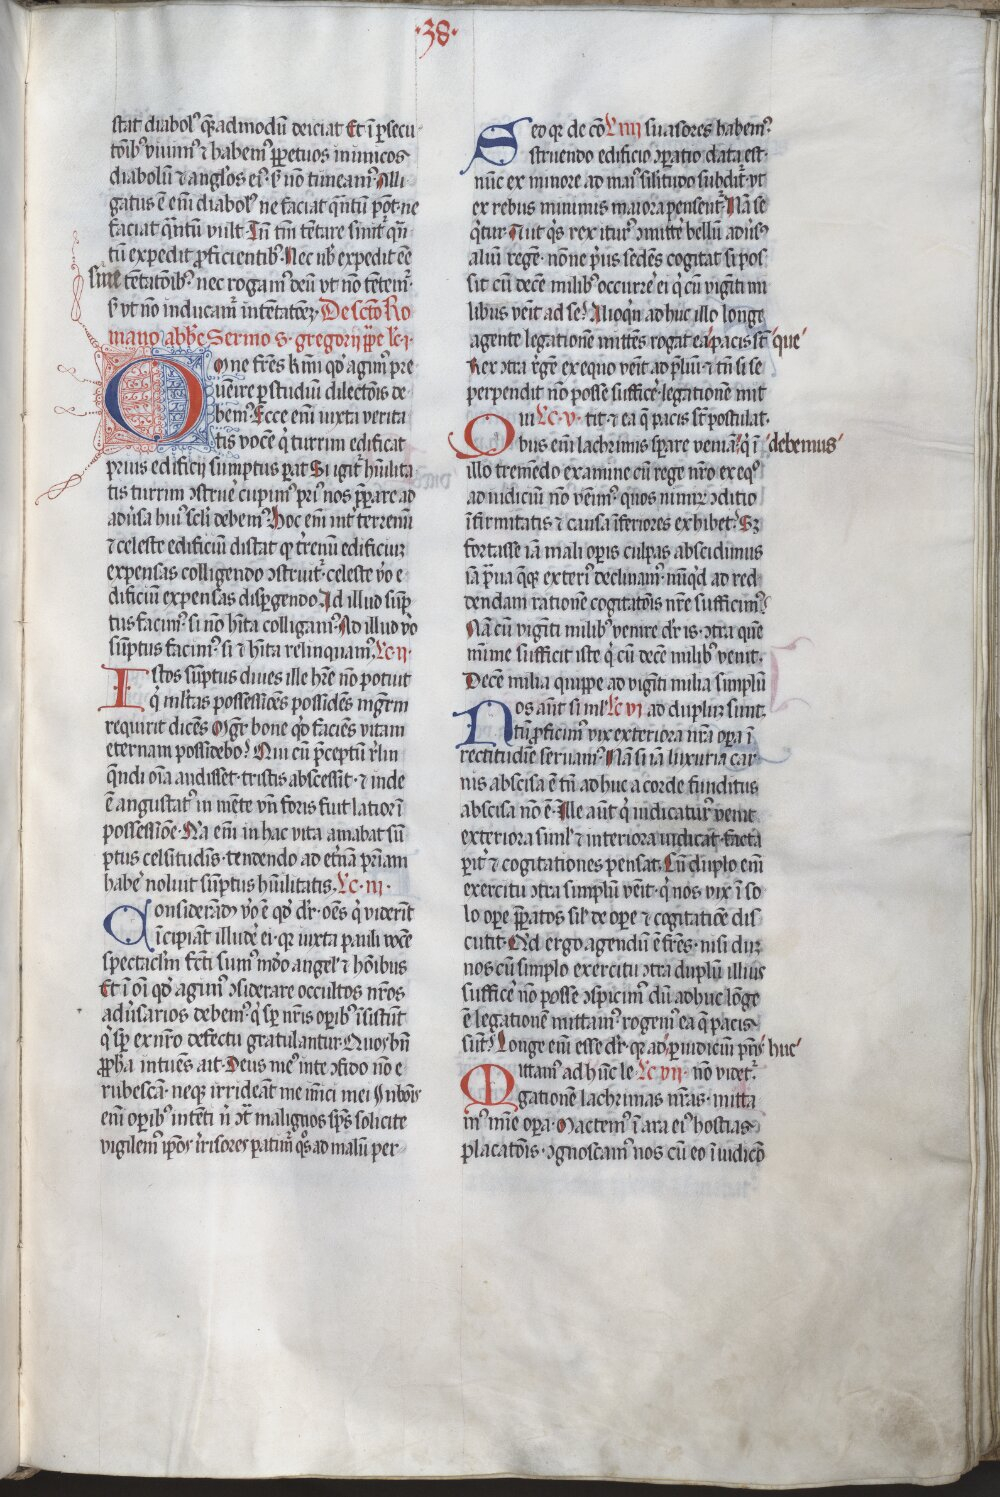 ·38·
stat diabolꝰ q̃admodũ deiciat Et ĩ ꝑsecu
tõib; viuimꝰ ⁊ habemꝰ ꝑpetuos inimicos
diabolũ ⁊ angl̃os eiꝰ· s̃ nõ timeamꝰ· Alli
gatus ẽ em̃ diabolꝰ ne faciat q̃ntũ põt· ne
faciat q̃ntũ vult· In̄ tm̃ tẽtare sinit᷑ q̃n
tũ expedit ꝓficientib;· Nec ub̾ expedit ẽẽ
sine tẽtatõib;· nec rogamꝰ deũ vt nõ tẽtem̃·
s̃ vt nõ inducam᷑ in tẽtatõez· De sct̃o Ro
mano abb̃e Sermo s· gregorij pp̃e lc̃·i·
Omne fr̃es k̃mi qd̾ agimꝰ pre
uẽire ꝑ studiũ dilectõis de
bemꝰ· Ecce em̃ iuxta verita
tis vocẽ q̾ turrim edificat
prius edificij sumptus ꝑat Si igit᷑ hũilita
tis turrim ꝯstrue᷑ cupimꝰ priꝰ nos p̃ꝑare ad
adũsa huiꝰ sc̃li debemꝰ· Hoc em̃ int̾ terrenũ
⁊ celeste edificiũ distat q̾ tr̃enũ edificiuz
expensas colligendo ꝯstruit᷑· celeste v̾o e
dificiũ expensas disꝑgendo· Ad illud sũp
tus facimꝰ· si nõ hĩta colligamꝰ· Ad illud v̾o
sũptus facimꝰ· si ⁊ hĩta relinquamꝰ· Lc̃·ij·
Istos sũptus diues ille hr̃e nõ potuit
q̾ ml̃tas possessiões possidẽs mg̃rm
requirit dicẽs Mg̃r bone qd̾ faciẽs vitam
eternam possidebo? Qui cũ p̃ceptũ r̃lin
q̃ndi oĩa audisset· tristis abscessit· ⁊ inde
ẽ angustatꝰ in mẽte vñ foris fuit latior ĩ
possessiõe· Q̾a em̃ in hac vita amabat sũ
ptus celsitudĩs· tendendo ad et̾nã pr̃iam
habe᷑ noluit sũptus hũilitatis· Lc̃·iij·
Considerãdũ v̾o ẽ qd̾ dr̃· oẽs q̾ viderĩt
ĩcipiãt illude᷑ ei· q̾ iuxta pauli vocẽ
spectacl̃m fc̃ti sumꝰ mũdo angel̃ ⁊ hõibus
Et ĩ oĩ qd̾ agimꝰ ꝯsiderare occultos nr̃os
adũsarios debemꝰ· q̾ sp̃ nr̃is oꝑib; ĩsistũt
q̾ sp̃ ex nr̃o defectu gratulantur· Quos bñ
ꝓph̃a intuẽs ait· Deus meꝰ in te ꝯfido nõ e
rubescã· neq; irrideãt me inĩci mei In boĩs
em̃ oꝑib; intẽti n̾ ꝯt̃ malignos sp̃s solicite
vigilemꝰ ip̃os irrisores patim᷑ q̾s ad malũ per
Sed q̾ de cõ Lc̃·iiij suasores habemꝰ
struendo edificio ꝯꝑatio data est·
nũc ex minore ad maiꝰ silĩtudo subdit᷑· vt
ex rebus minimis maiora pensent᷑· Nã se
q̾tur· Aut q̾s rex iturꝰ ꝯmitte᷑ bellũ adũsꝰ
aliũ regẽ· nõne p̾us sedẽs cogitat si pos
sit cũ decẽ milib; occurre᷑ ei q̾ cũ viginti mi
libus veĩt ad se? Alioq̾n adhuc illo longe
agente legationẽ mittẽs rogat ea q̃ pacis st̃ que
Rex ꝯtra r̃gẽ ex equo veĩt ad p̃liũ· ⁊ tñ si se
perpendit nõ posse suffice᷑ legationẽ mit
Qui Lc̃·v· tit· ⁊ ea q̃ pacis st̃ postulat·
bus em̃ lachrimis sꝑare veniã q̾ ĩ debemus
illo tremẽdo examine cũ rege nr̃o ex eq̾
ad iudiciũ nõ veĩmꝰ· quos nimiꝝ ꝯditio
ĩfirmitatis ⁊ causa ĩferiores exhibet· Sz
fortasse iã mali oꝑis culpas abscidimus
iã p̃ua q̃q; exteriꝰ declinamꝰ· nũq̾d ad red
dendam rationẽ cogitatõis nr̃e sufficimꝰ?
Nã cũ viginti milib; venire dr̃ is· ꝯtra quẽ
mĩme sufficit iste q̾ cũ decẽ milib; venit·
Decẽ milia quippe ad viginti milia simplũ
Nos aũt siml̃ Lc̃·vi ad dupluz sunt·
tũ ꝓficimꝰ vix exteriora nr̃a oꝑa ĩ
rectitudĩe seruamꝰ· Nã si iã luxuria car
nis abscisa ẽ tñ adhuc a corde funditus
abscisa nõ ẽ· Ille aũt q̾ iudicaturꝰ venit·
exteriora siml̃ ⁊ interiora iudicat· facta
ꝑit᷑ ⁊ cogitationes pensat· Cũ duplo em̃
exercitu ꝯtra simplũ veĩt· q̾ nos vix ĩ so
lo oꝑe p̃ꝑatos sil̃ de oꝑe ⁊ cogitatiõe dis
cutit· Q̾d ergo agendũ ẽ fr̃es· nisi duz
nos cũ simplo exercitu ꝯtra duplũ illius
suffice᷑ nõ posse ꝯspicimꝰ dũ adhuc lõge
ẽ legationẽ mittamꝰ rogemꝰ ea q̃ pacis
sũt? Longe em̃ esse dr̃· q̾ ad ꝑ iudiciũ pñs huc
Mittamꝰ ad hũc le Lc̃·vij· nõ videt᷑·
gationẽ lachrimas nr̃as· mitta
mꝰ mĩe oꝑa· Mactemꝰ ĩ ara eiꝰ hostias
placatõis· ꝯgnoscamꝰ nos cũ eo ĩ iudicõ